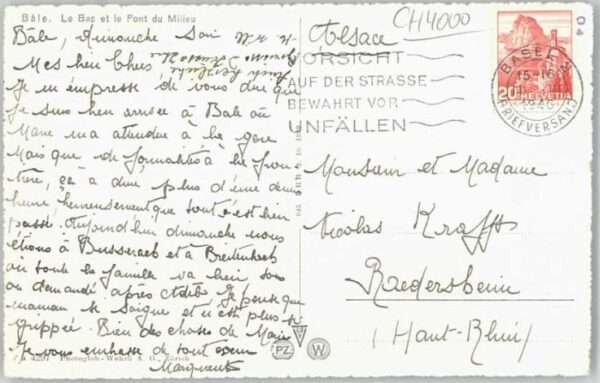 Bâle. Le Bac et le Pont du Milieu
Bâle, dimanche soir
Mes bien chers
Je m'empresse de vous dire que
Je suis bien arrivée à Bale où
Marie m'a attendue à la gare
Mais que de formalités à la fron
tière, ça a duré plus d'une demi
heure heureusement que tout c'est bien
passé. Aujourd'hui dimanche nous
étions à et à Breitenbach
où toute la famille va bien
ou demandé après Je pense que
maman se soigne et n'est plus si
grippée. Bien des choses de Marie
Je vous embrasse de tout cœur
Marguerite
4291 Photoglob-Wehrli A. G., Zürich
CH4000
Alsace
VORSICHT
AUF DER STRASSE
BEWAHRT VOR
UNFÄLLEN
BASEL
15-16
1946
BRIEFVERSAND
20 HELVETIA
04
Monsieur et Madame
Nicolas Krafft
Raedersheim
(Haut-Rhin)
PZ
W